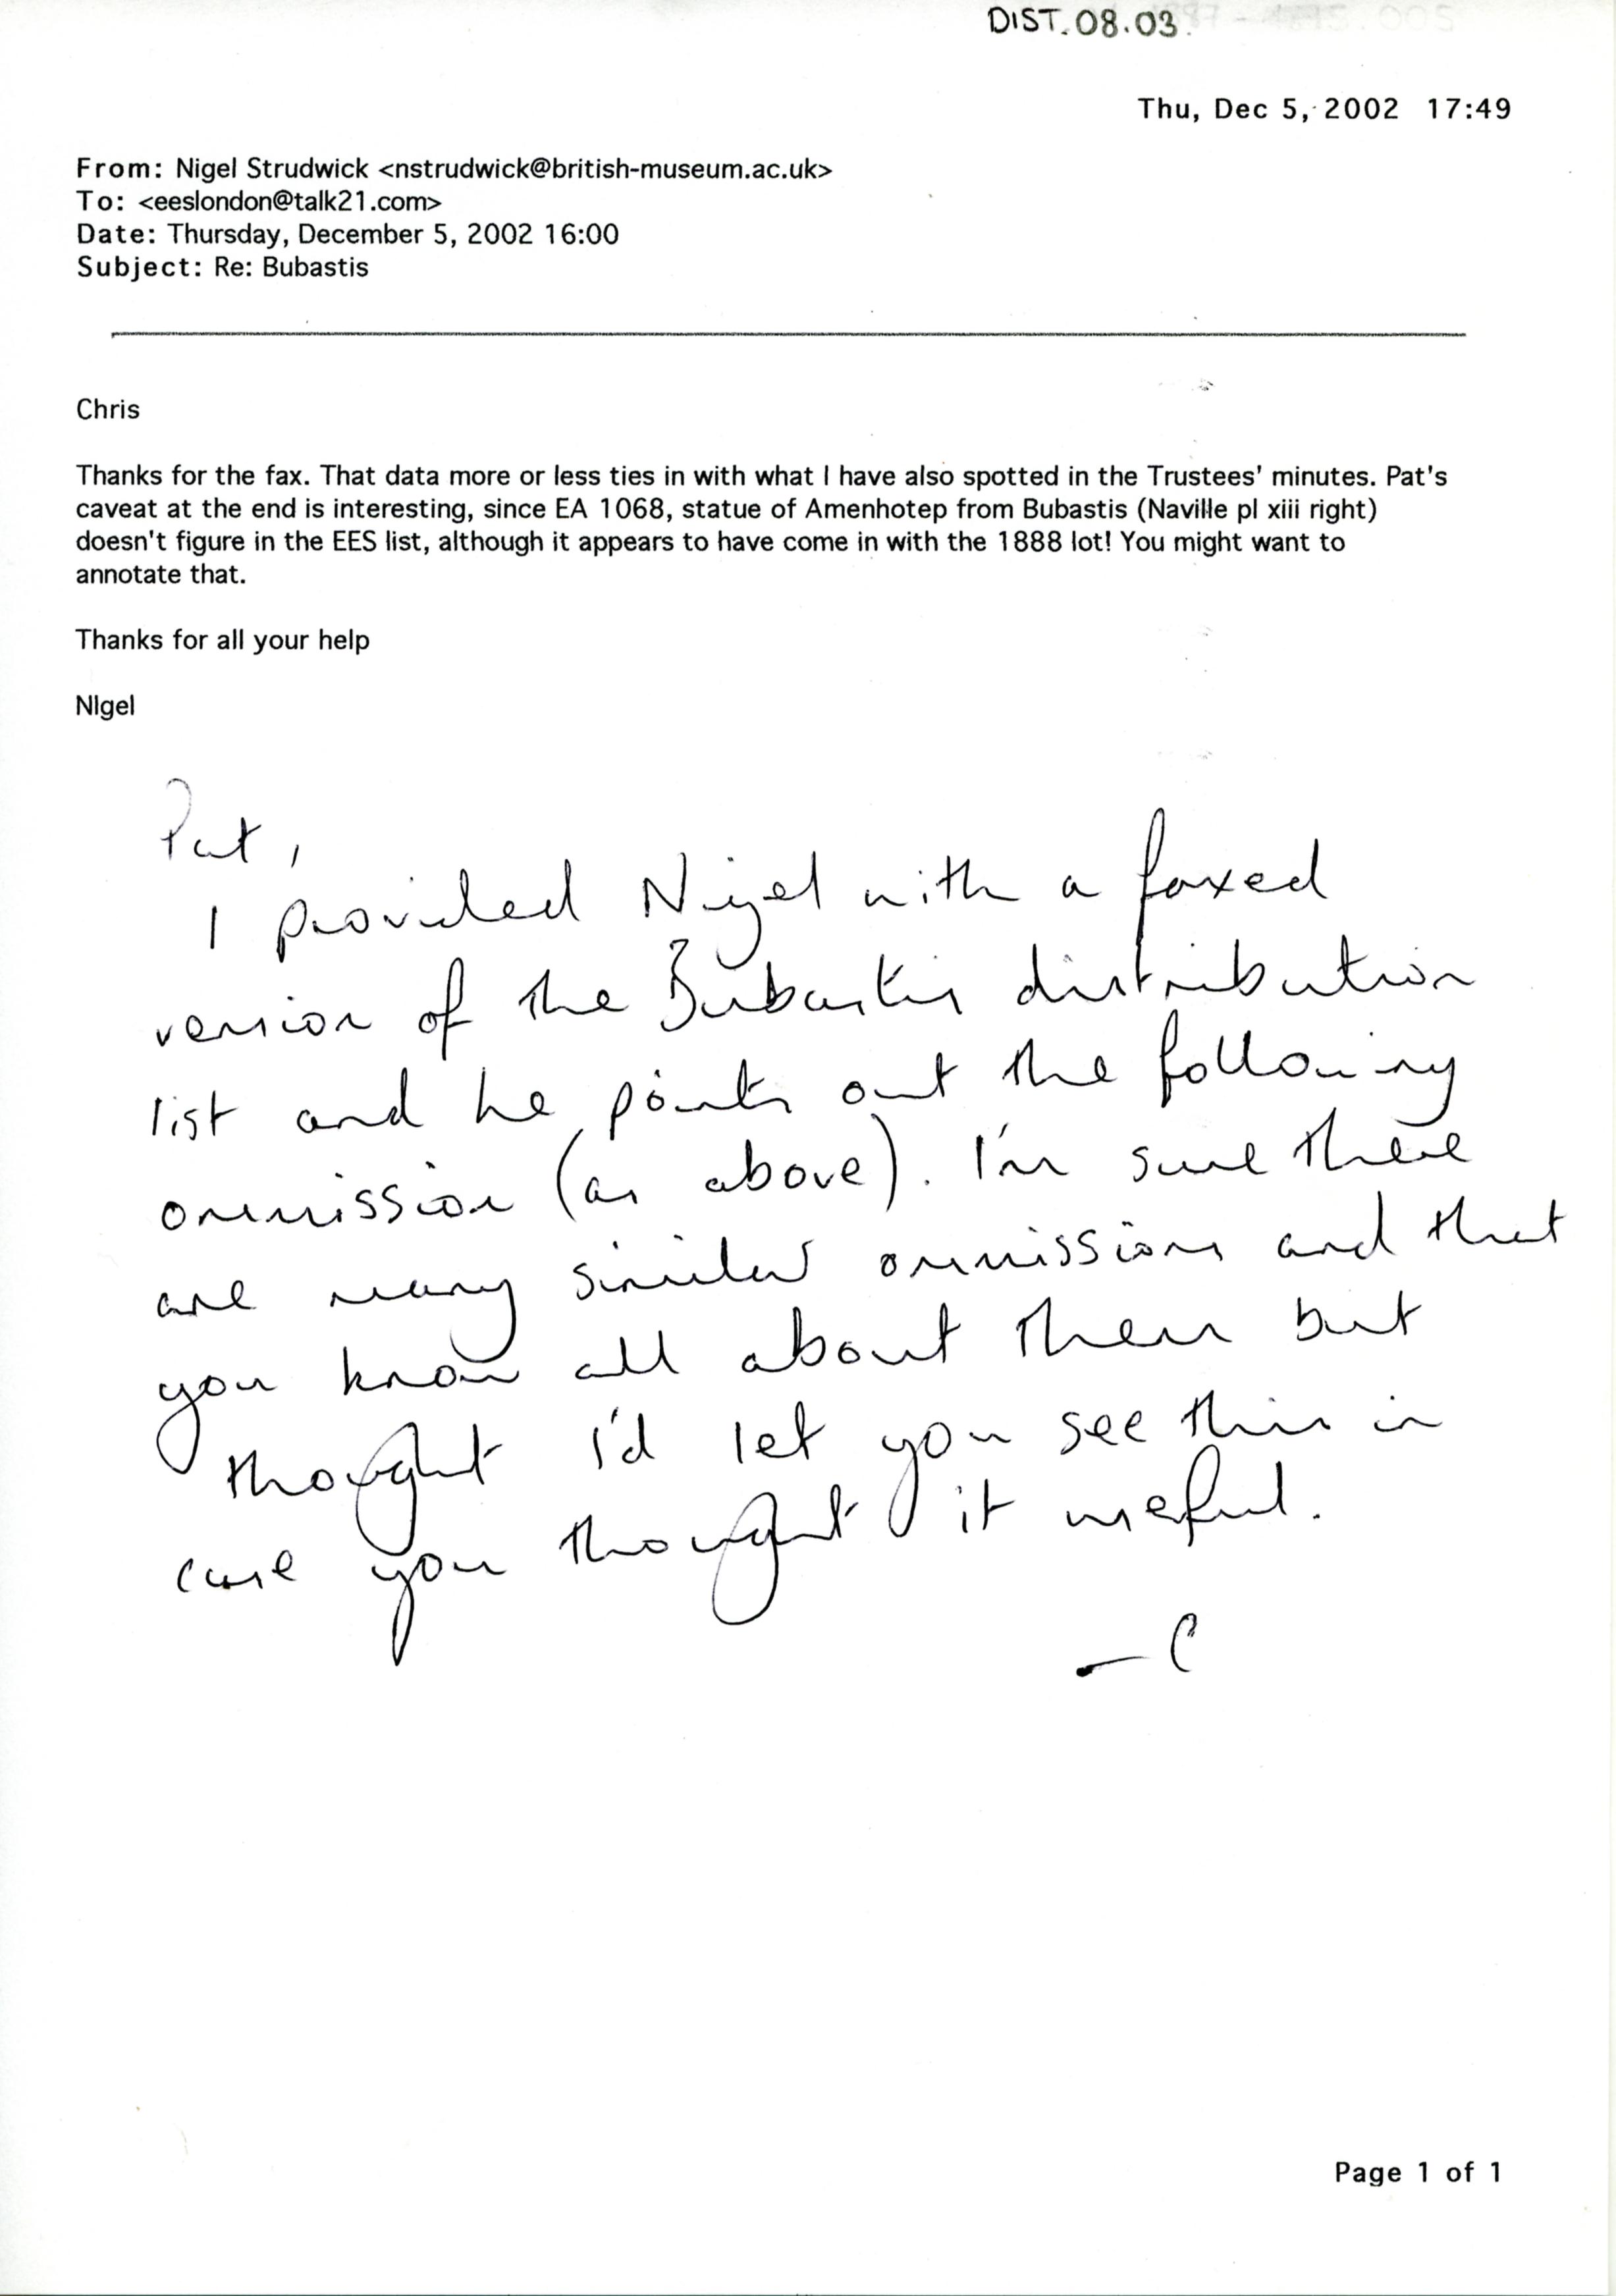 DIST.08.03.
Thu, Dec 5, 2002 17:49
From: Nigel Strudwick <nstrudwick@british-museum.ac.uk>
To: <eeslondon@talk21.com>
Date: Thursday, December 5, 2002 16:00
Subject: Re: Bubastis
Chris
Thanks for the fax. That data more or less ties in with what I have also spotted in the Trustees' minutes. Pat's
caveat at the end is interesting, since EA 1068, statue of Amenhotep from Bubastis (Naville pl xiii right)
doesn't figure in the EES list, although it appears to have come in with the 1888 lot! You might want to
annotate that.
Thanks for all your help
NIgel
Pat,
I provided Nigel with a faxed
version of the Bubastis distribution
list and he points out the following
ommission (as above). I'm sure there
are many similar ommissions and that
you know all about them but
thought I'd let you see this in
case you thought it useful.
— C
Page 1 of 1